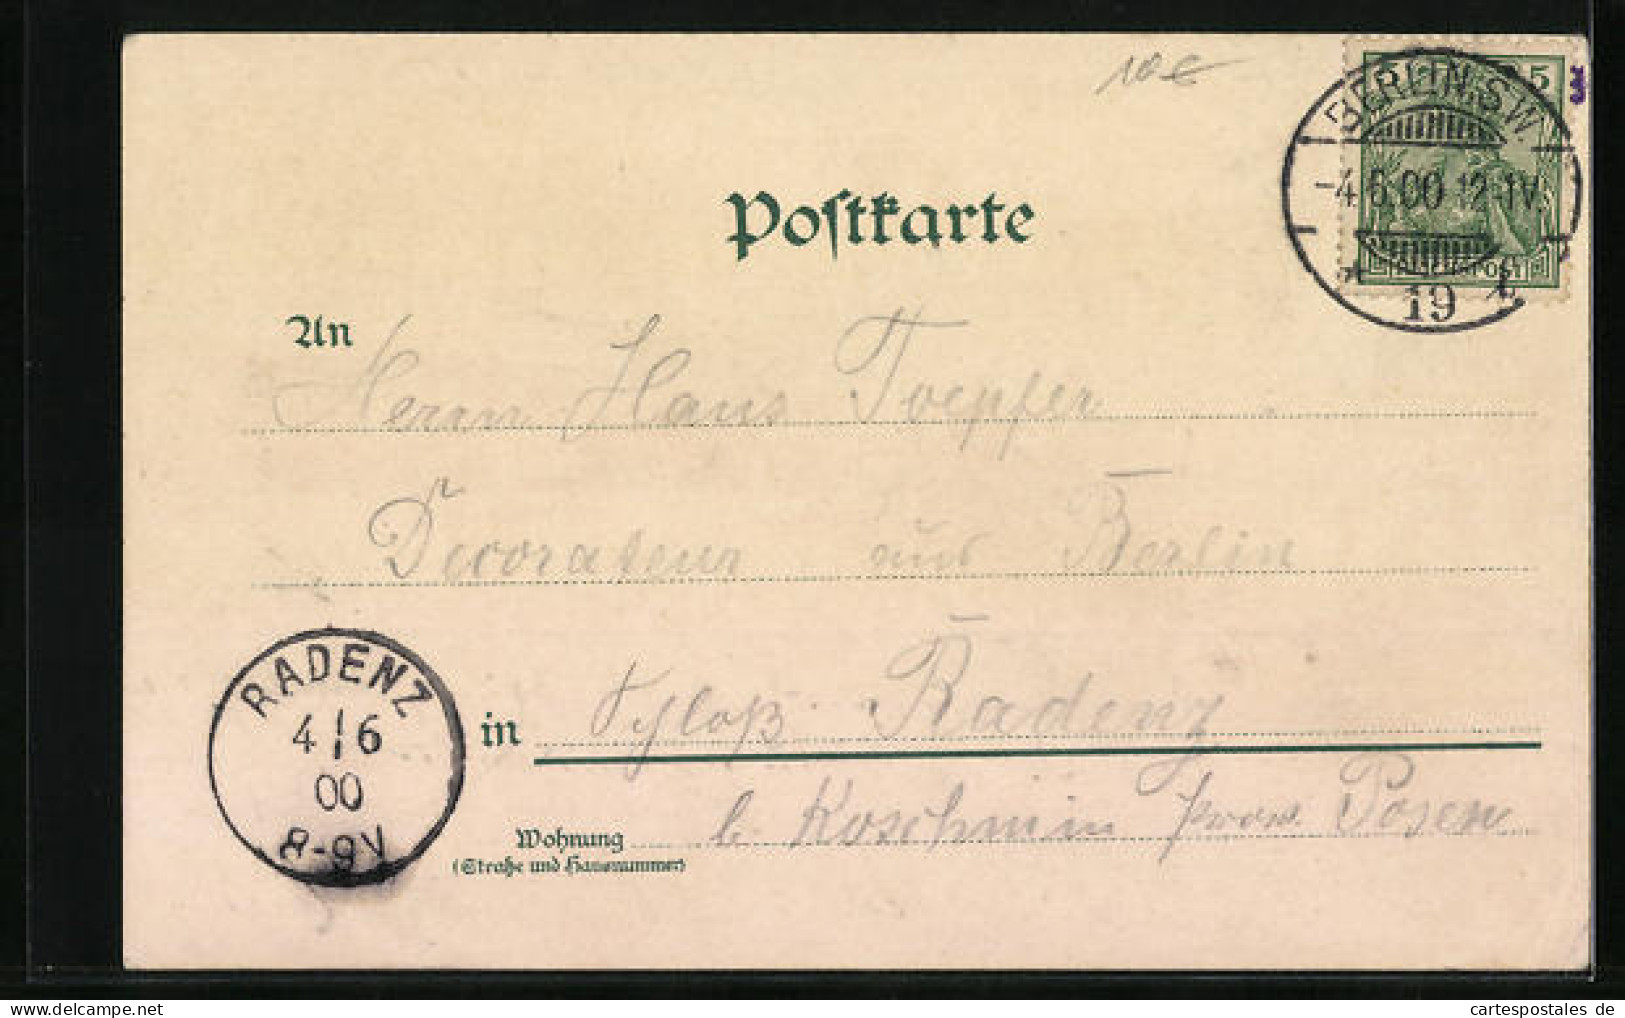 10 €
5
BERLIN, S.W.
-4.6.00 12-1V.
19
REICHSPOST
Postkarte
An Herrn Hans Toepfer
Decorateur aus Berlin
RADENZ
4 6
00
8-9V
in Schloß Radenz
Wohnung b. Koschmin Prov. Posen
(Straße und Hausnummer)
cartespostales de